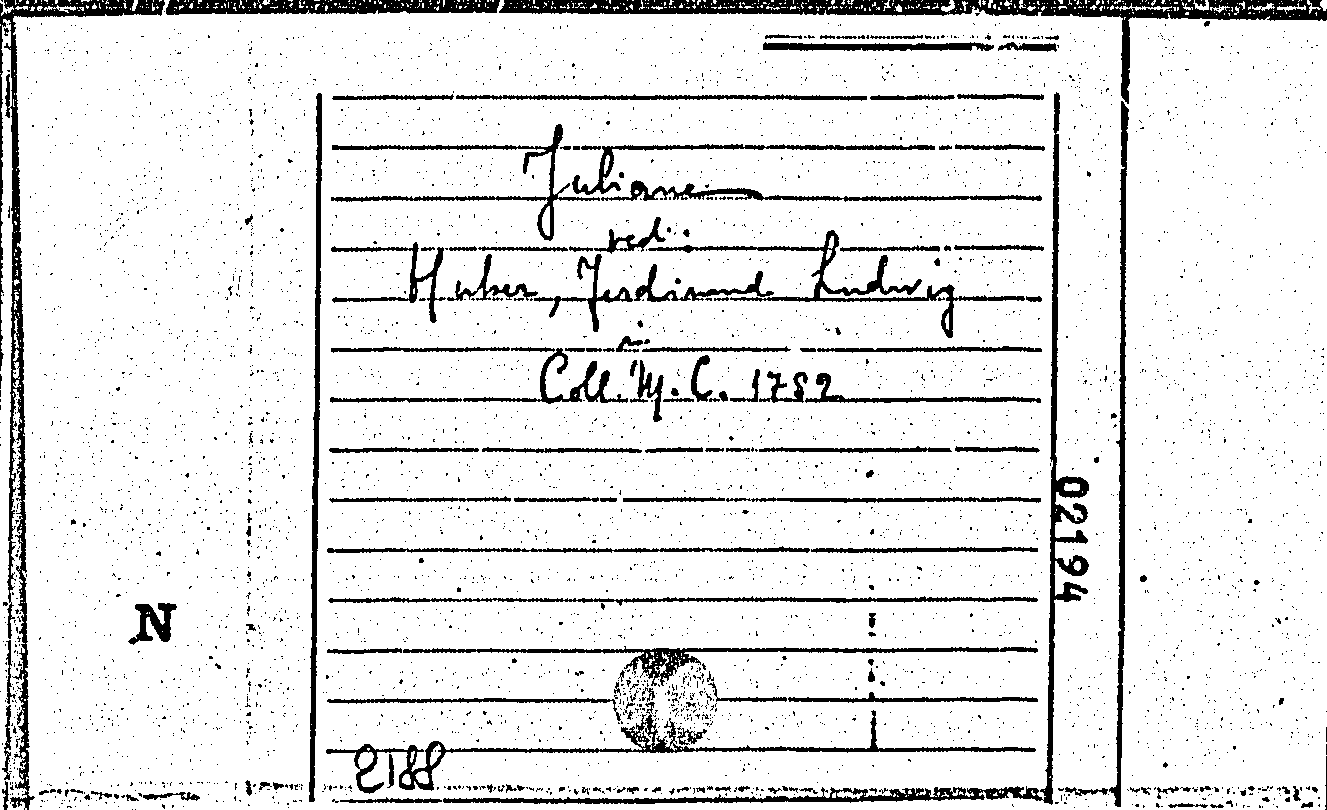 Juliane
red.:
Huber, Ferdinand Ludwig
in:
Coll. M. C. 1782
02194
N
2188